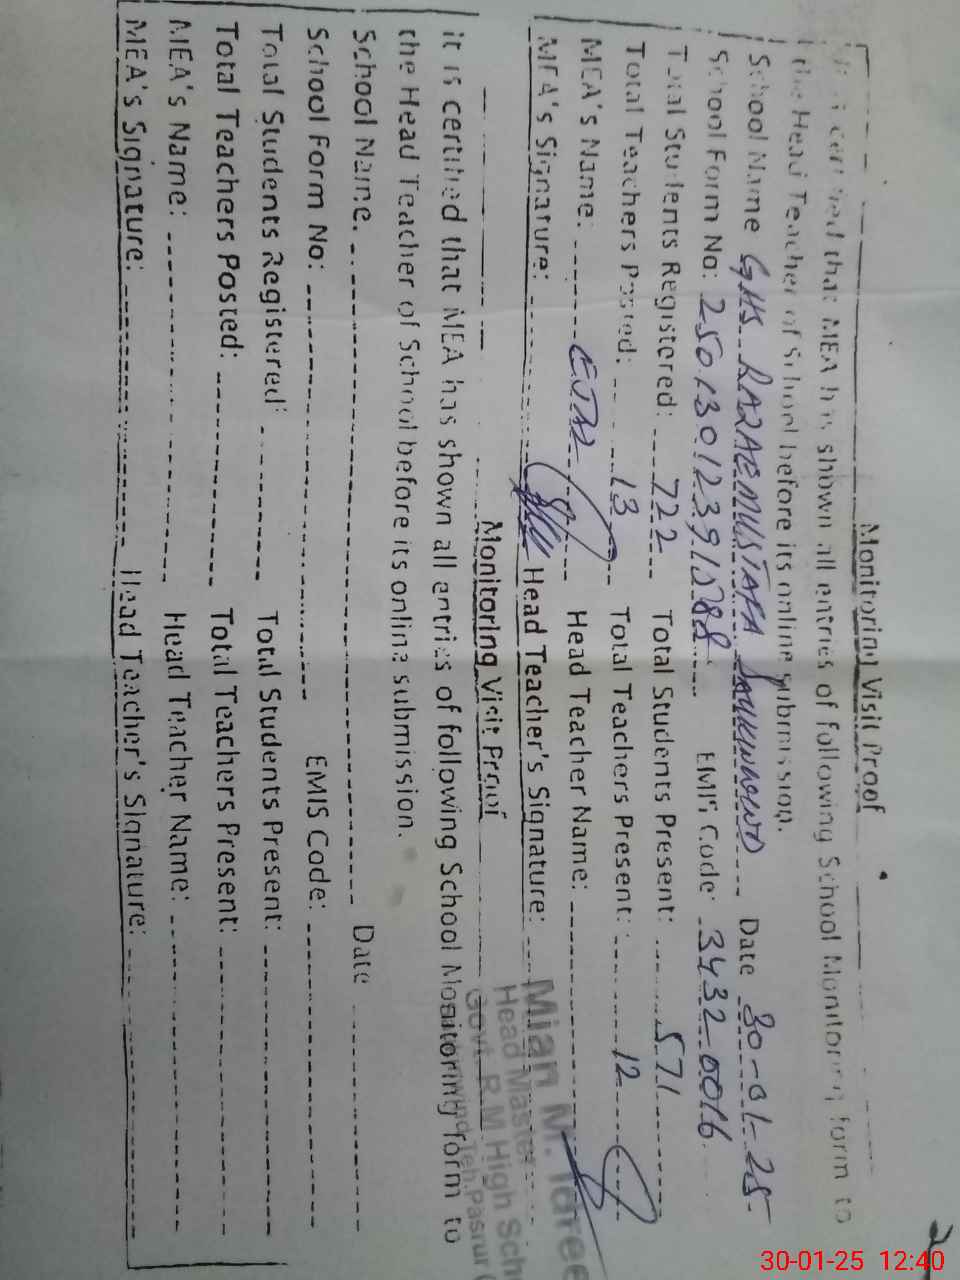 Monitoring Visit Proof
It is certified that MEA has shown all entries of following School Monitoring form to
the Head Teacher of School before its online submission.
School Name GHS RAZAEMUSTAFA Date 30-01-25
School Form No: EMIS Code: 34320066
Total Students Registered: 722 Total Students Present: 571
Total Teachers Posted: 13 Total Teachers Present: 12
MEA's Name: Head Teacher Name:
MEA's Signature: Head Teacher's Signature:
Mian M. Idrees
Head Master
Govt. R.M High Sch
Teh. Pasrur (
Monitoring Visit Proof
it is certified that MEA has shown all entries of following School Monitoring form to
the Head Teacher of School before its online submission.
School Name. Date
School Form No: EMIS Code:
Total Students Registered: Total Students Present:
Total Teachers Posted: Total Teachers Present:
MEA's Name: Head Teacher Name:
MEA's Signature: Head Teacher's Signature:
30-01-25 12:40